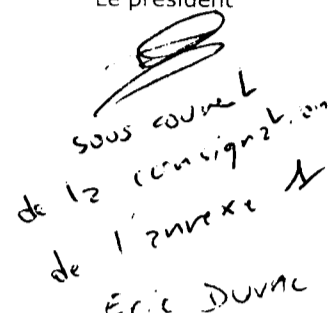 Le président
sous couvert
de la consignation
de l'annexe 1
Eric Duvac